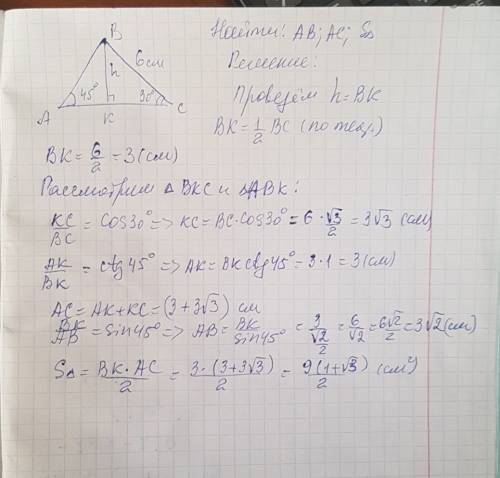 B
6см
h
A 45° K 30° C
Найти: AB; AC; S△
Решение:
Проведём h=BK
BK = 1/2 BC (по теор.)
BK = 6/2 = 3 (см)
Рассмотрим △ BKC и △ABK:
KC/BC = Cos30° => KC = BC·Cos30° = 6·√3/2 = 3√3 (см)
AK/BK = ctg 45° => AK = BK ctg 45° = 3·1 = 3 (см)
AC = AK+KC = (3+3√3) см
BK/AB = Sin45° => AB = BK/Sin45° = 3/(√2/2) = 6/√2 = 6√2/2 = 3√2 (см)
S△ = BK·AC/2 = 3·(3+3√3)/2 = 9(1+√3)/2 (см²)